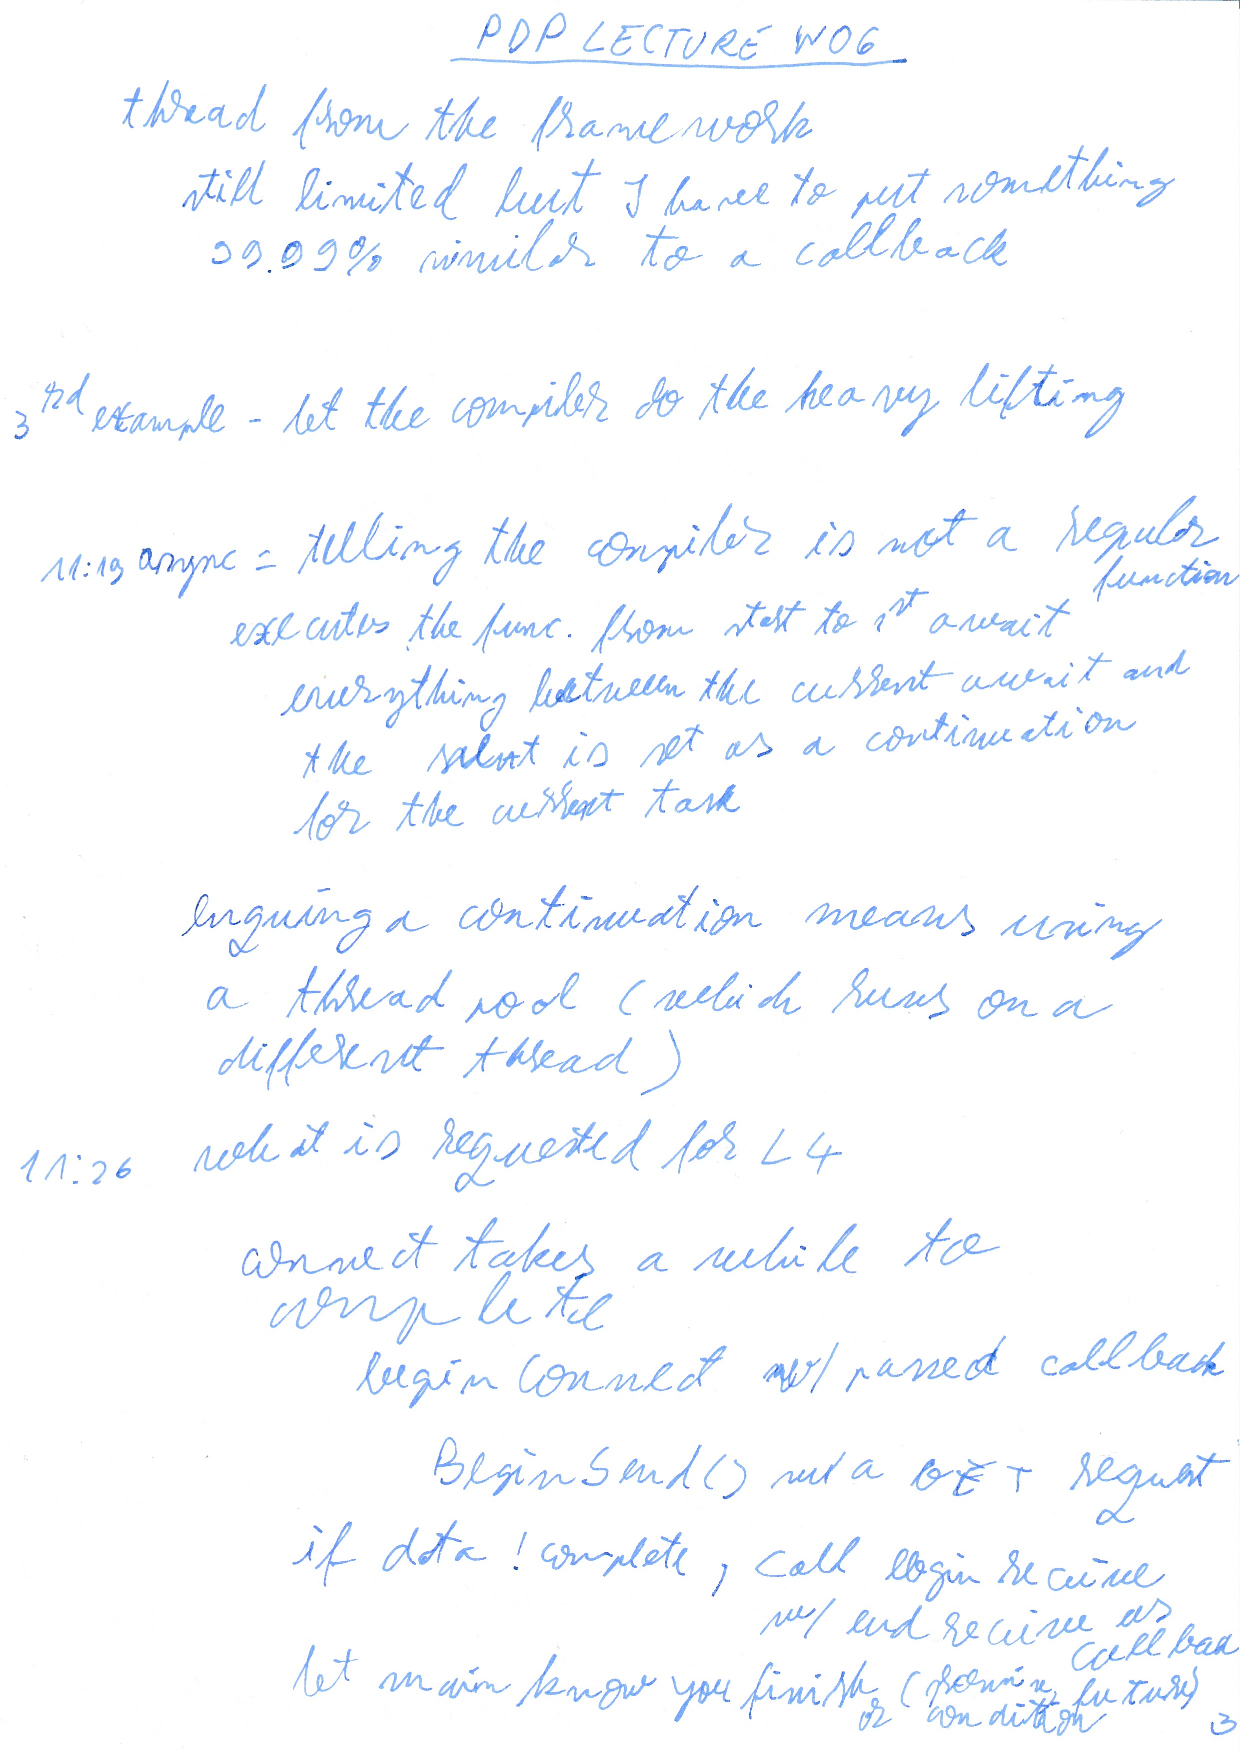 PDP LECTURE W06
thread from the framework
still limited but I have to put something
99.99% similar to a callback
3rd example - let the compiler do the heavy lifting
11:19 async = telling the compiler is not a regular
function
executes the func. from start to 1st await
everything between the current await and
the is set as a continuation
for the current task
enquing a continuation means using
a thread pool (which runs on a
different thread)
11:26 what is requested for L4
connect takes a while to
complete
begin Connect w/ passed callback
BeginSend() w/ a GET request
if data ! complete, call begin receive
w/ end receive as
callback
let main know you finish (promise, future)
or condition
3